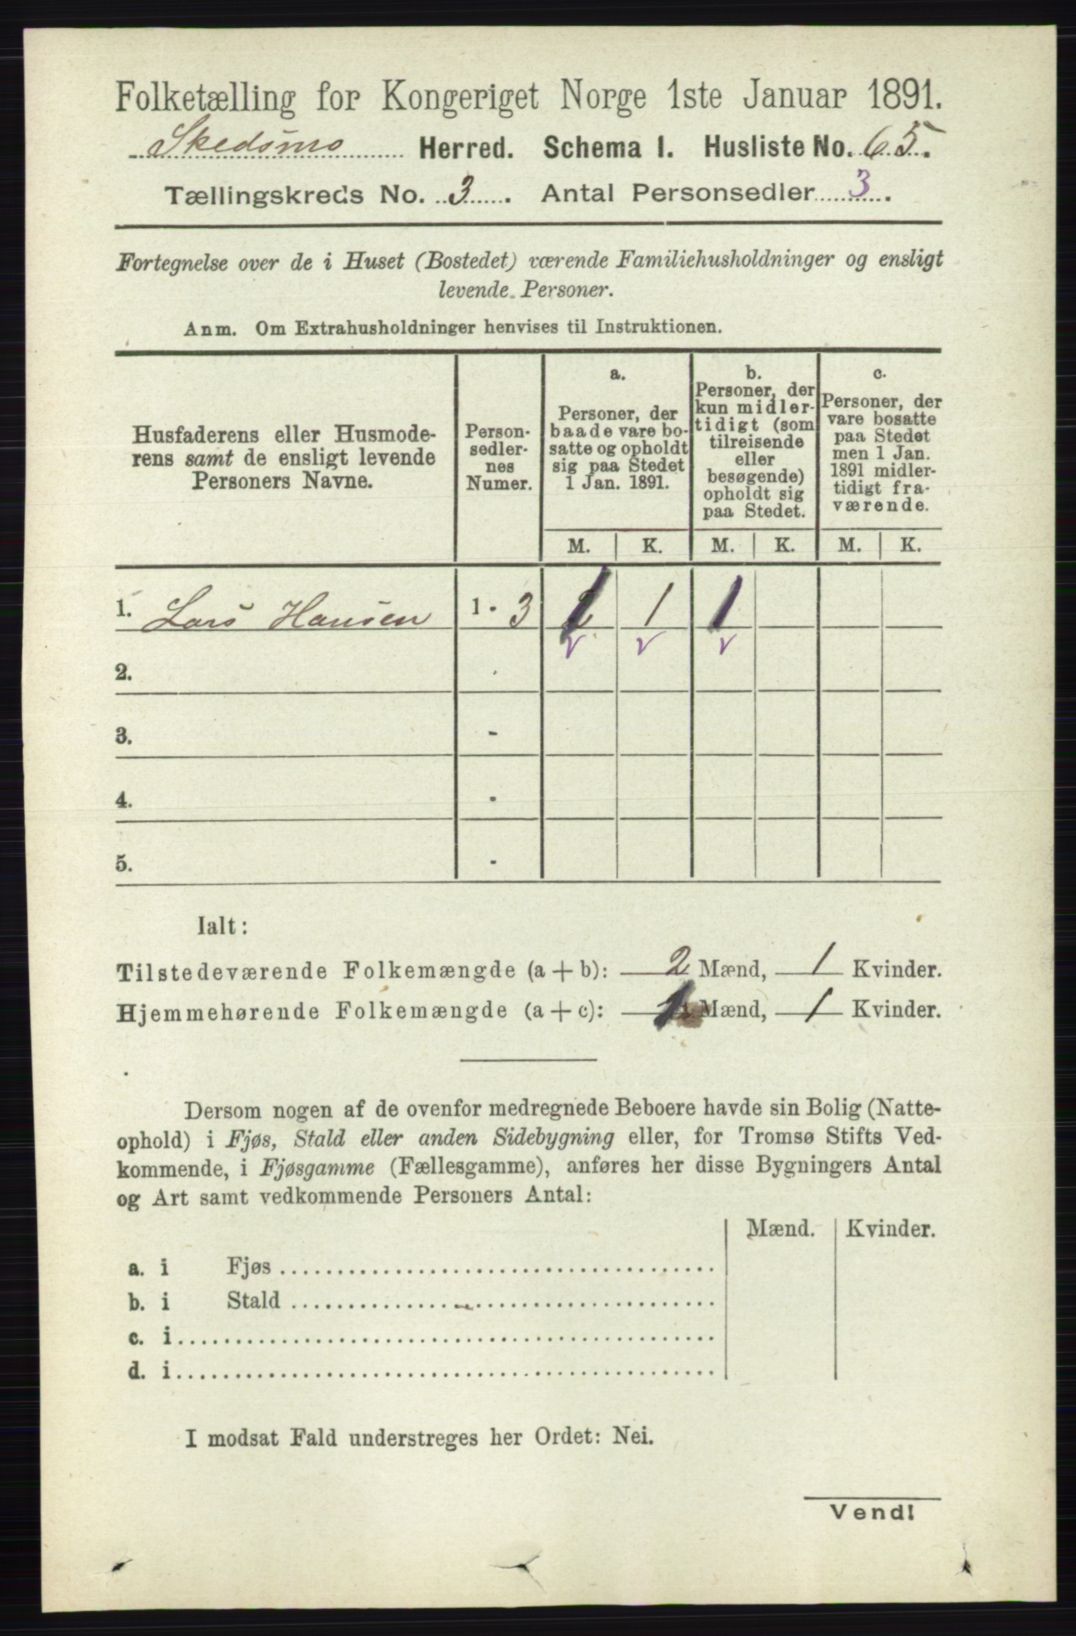 Folketælling for Kongeriget Norge 1ste Januar 1891.
Skedsmo Herred. Schema I. Husliste No. 65.
Tællingskreds No. 3. Antal Personsedler 3.
Fortegnelse over de i Huset (Bostedet) værende Familiehusholdninger og ensligt
levende Personer.
Anm. Om Extrahusholdninger henvises til Instruktionen.
Husfaderens eller Husmode-
rens samt de ensligt levende
Personers Navne.
Person-
sedler-
nes
Numer.
a.
Personer, der
baade vare bo-
satte og opholdt
sig paa Stedet
1 Jan. 1891.
b.
Personer, der
kun midler-
tidigt (som
tilreisende
eller
besøgende)
opholdt sig
paa Stedet.
c.
Personer, der
vare bosatte
paa Stedet
men 1 Jan.
1891 midler-
tidigt fra-
værende.
M. K. M. K. M. K.
1. Lars Hansen 1 - 3 1 1 1
v v v
2.
3. -
4. -
5. -
Ialt:
Tilstedeværende Folkemængde (a + b): 2 Mænd, 1 Kvinder.
Hjemmehørende Folkemængde (a + c): 1 Mænd, 1 Kvinder.
Dersom nogen af de ovenfor medregnede Beboere havde sin Bolig (Natte-
ophold) i Fjøs, Stald eller anden Sidebygning eller, for Tromsø Stifts Ved-
kommende, i Fjøsgamme (Fællesgamme), anføres her disse Bygningers Antal
og Art samt vedkommende Personers Antal:
Mænd. Kvinder.
a. i Fjøs
b. i Stald
c. i
d. i
I modsat Fald understreges her Ordet: Nei.
Vend!